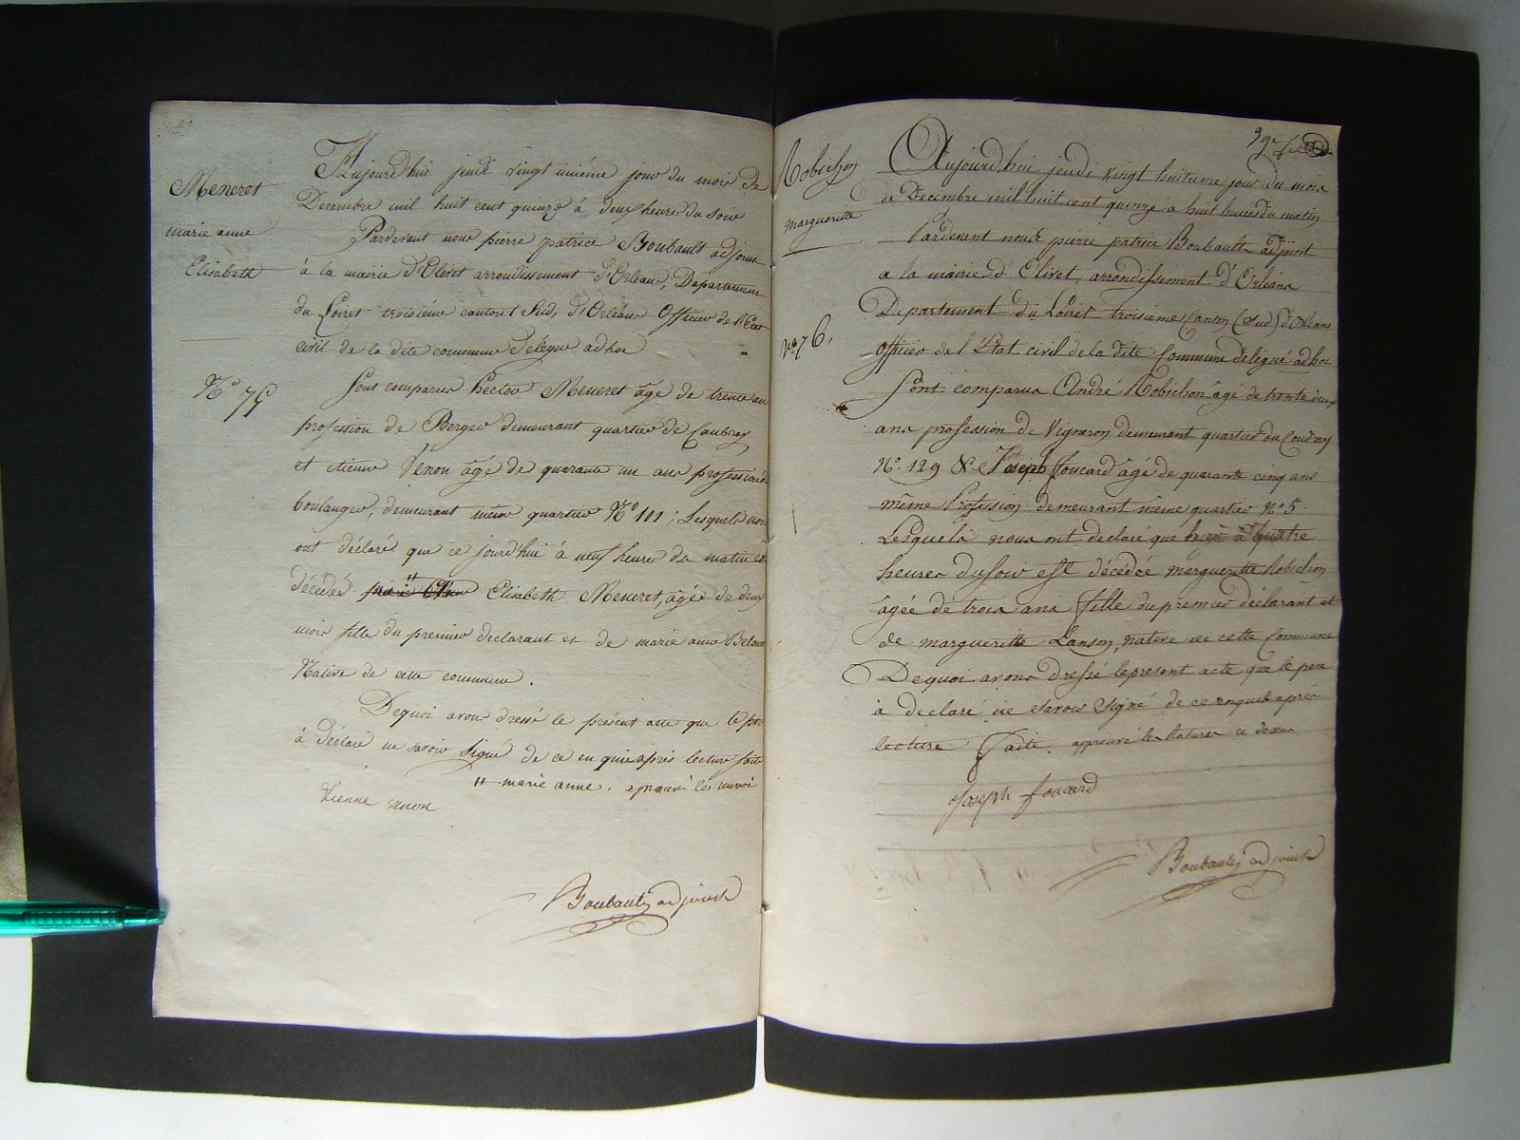 Meneret
marie anne
Elisabeth
N° 75
Aujourd'hui jeudi vingt uniéme jour du mois de
Decembre mil huit cent quinze à deux heures du soir
Pardevant nous pierre patrice Boubault adjoint
à la mairie d'Olivet arrondissement d'Orleans, Departement
du Loiret troisiéme canton Sud, d'Orléans Officier de l'Etat
civil de la dite commune Delégué ad hoc
Sont comparus hector Meneret âgé de trente ans
profession de Berger demeurant quartier de
et etienne Venon âgé de quarante un ans profession de
boulanger, demeurant même quartier N° 111; Lesquels nous
ont déclaré que ce jourd'hui à neuf heures du matin est
décédée marie Anne " Elisabeth Meneret, âgée de deux
mois fille du premier declarant et de marie anne
Native de cette commune.
Dequoi avons dressé le présent acte que le pere
à déclaré ne savoir signé de ce enquis après lecture faite
" marie anne. aprouvé les renvoi
Etienne venon
Boubault adjoint
Robichon
marguerite
N° 76,
99e
Aujourd'hui jeudi vingt huitieme jour du mois
de Decembre mil huit cent quinze a huit heures du matin
Pardevant nous pierre patrice Boubault adjoint
a la mairie d'Olivet, arrondissement d'Orléans
Departement du Loiret troisieme Canton (Sud) d'Orleans
Officier de l'Etat civil de la dite Commune délégué ad hoc
Sont comparus André Robichon âgé de trente deux
ans profession de Vigneron demeurant quartier du Coudray
N° 129 & Joseph Foucard âgé de quarante cinq ans
même Profession demeurant même quartier N° 5.
Lesquels nous ont declaré que hier à quatre
heures du soir est décédée marguerite Robichon
âgée de trois ans fille du premier déclarant et
de marguerite Lanson, native de cette Commune
Dequoi avons dressé le present acte que le pere
à declaré ne savoir signé de ce enquis après
lecture faite. approuvé les ratures ci dessus
Joseph foucard
Boubault adjoint